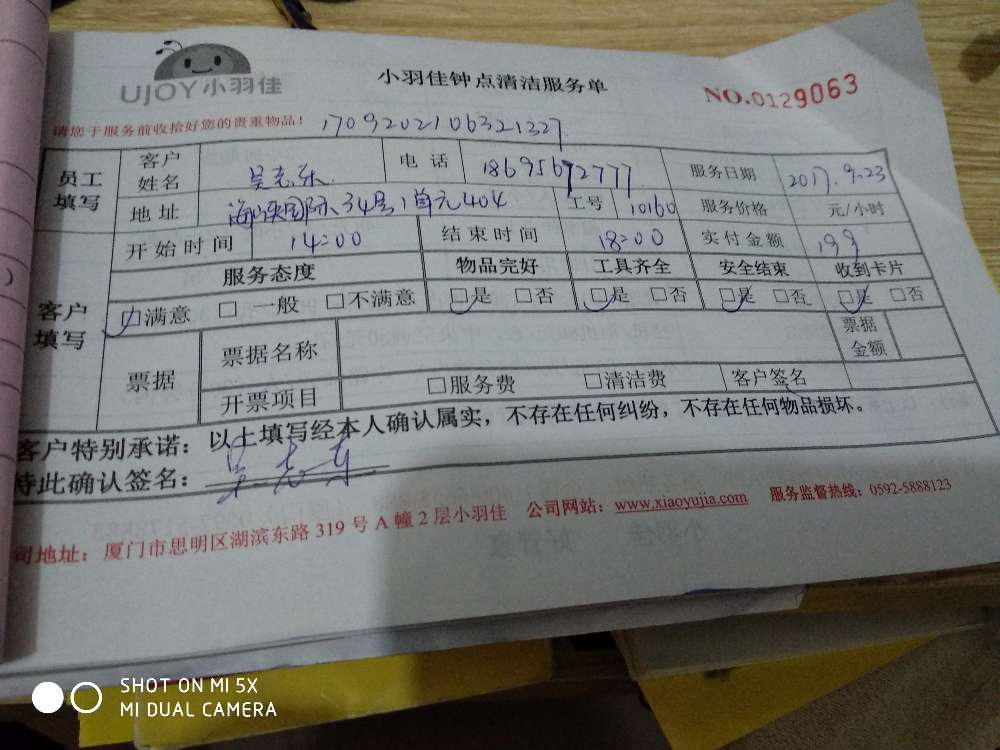 UJOY小羽佳
小羽佳钟点清洁服务单
NO.0129063
请您于服务前收拾好您的贵重物品！
1709202106321327
员工填写 客户姓名 吴志东 电话 18695672777 服务日期 2017.9.23
地址 国际34号1单元404 工号 10160 服务价格 元/小时
开始时间 14:00 结束时间 18:00 实付金额 199
客户填写 服务态度 物品完好 工具齐全 安全结束 收到卡片
☑满意 □一般 □不满意 ☑是 □否 ☑是 □否 ☑是 □否 ☑是 □否
票据 票据名称 票据金额
开票项目 □服务费 □清洁费 客户签名
客户特别承诺：以上填写经本人确认属实，不存在任何纠纷，不存在任何物品损坏。
特此确认签名：吴志东
司地址：厦门市思明区湖滨东路319号A幢2层小羽佳 公司网站：www.xiaoyujia.com 服务监督热线：0592-5888123
SHOT ON MI 5X
MI DUAL CAMERA